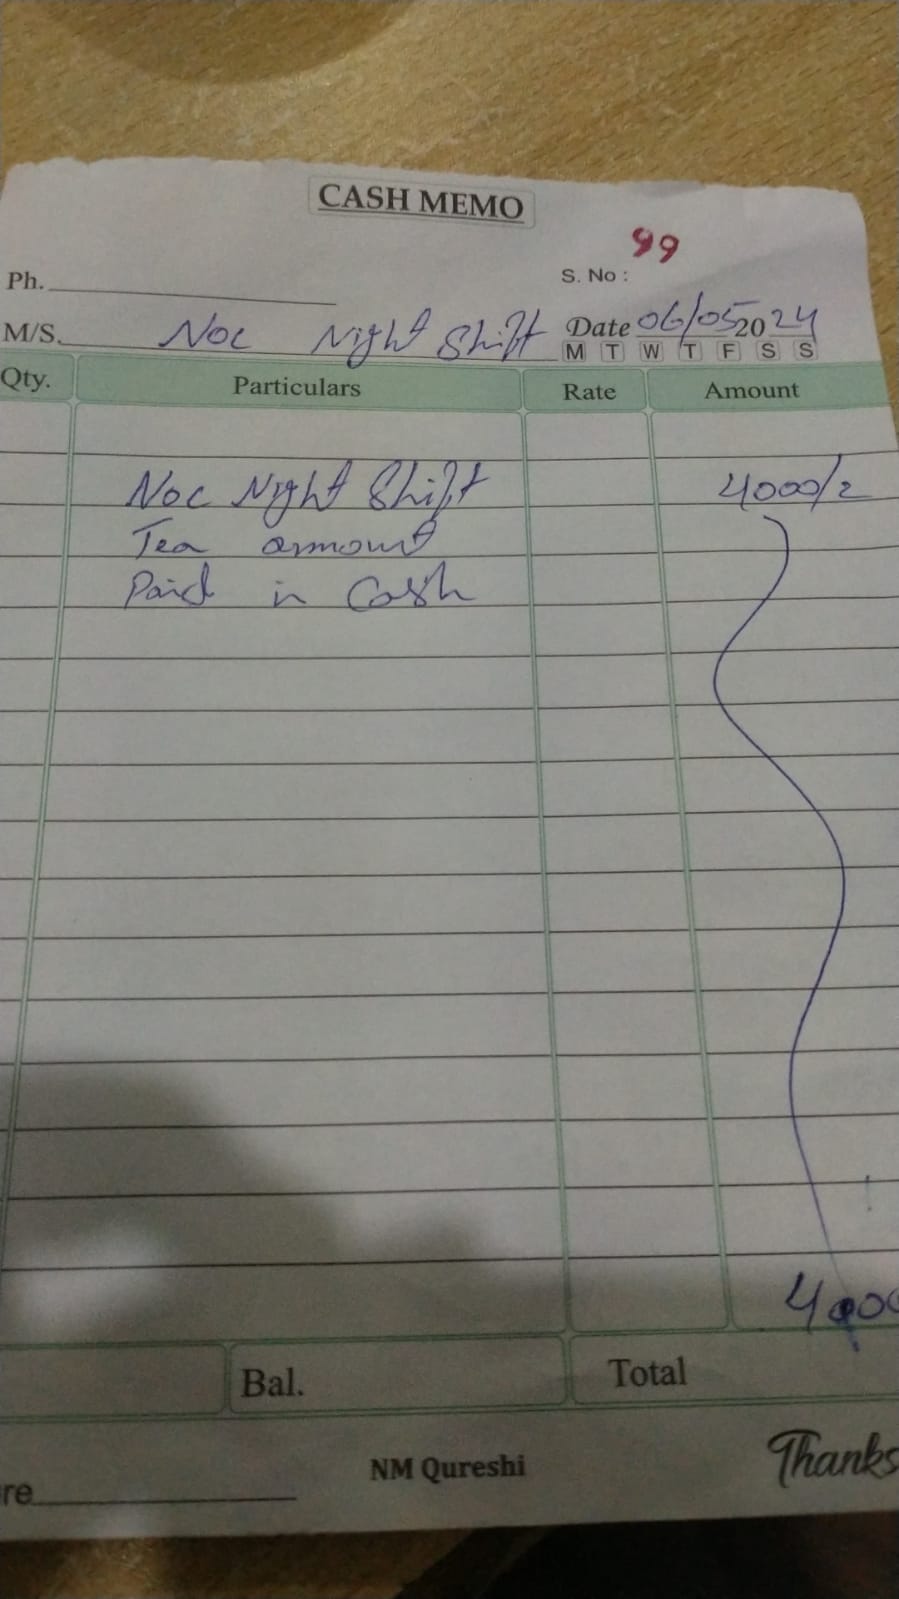 CASH MEMO
99
Ph.
S. No :
M/S. Noc Night Shift Date 06/05 2024
M T W T F S S
Qty. Particulars Rate Amount
Noc Night Shift 4000/=
Tea ammount
Paid in Cash
400
Bal. Total
NM Qureshi
Thanks
re